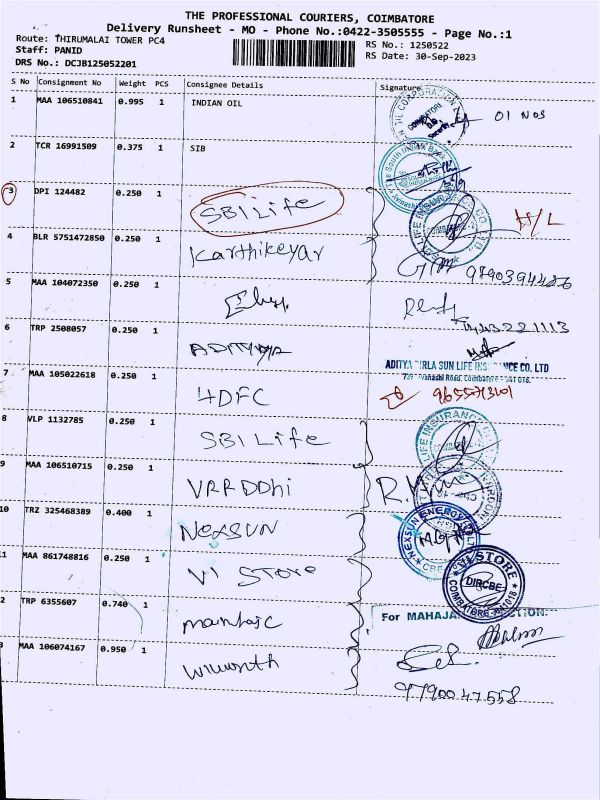 THE PROFESSIONAL COURIERS, COIMBATORE
Delivery Runsheet - MO - Phone No.:0422-3505555 - Page No.:1
Route: THIRUMALAI TOWER PC4
RS No.: 1250522
Staff: PANID
RS Date: 30-Sep-2023
DRS No.: DCJB125052201
S No Consignment No Weight PCS Consignee Details Signature
1 MAA 106510841 0.995 1 INDIAN OIL
01 Nos
2 TCR 16991509 0.375 1 SIB
The South Indian Bank
3 DPI 124482 0.250 1 SBI Life
H/L
4 BLR 5751472850 0.250 1 Karthikeyar
5 MAA 104072350 0.250 1
6 TRP 2508057 0.250 1 ADITYA
ADITYA BIRLA SUN LIFE INSURANCE CO. LTD
7 MAA 105022618 0.250 1 HDFC
8 VLP 1132785 0.250 1 SBI Life
LIFE INSURANCE
9 MAA 106510715 0.250 1 VRRDDhi
10 TRZ 325468389 0.400 1 NEXSUN
NEXSUN ENERGY
CBE
11 MAA 861748816 0.250 1 VI STORE
VI STORE
DIRCBE
COIMBATORE 641018
2 TRP 6355607 0.740 1
For MAHAJAN
3 MAA 106074167 0.950 1
9790047558